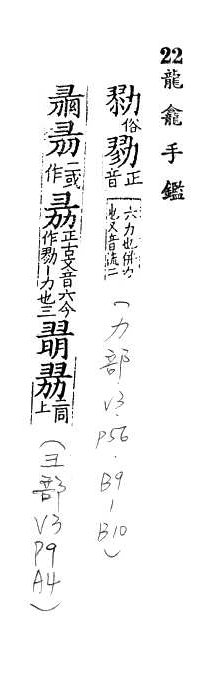 22 龍龕手鑑
俗勠正音六力也併力也又音流二(力部.V3.P56.B9-B10)
二或作正古文音六今作勠—力也三二同上(彐部V3P9A4)